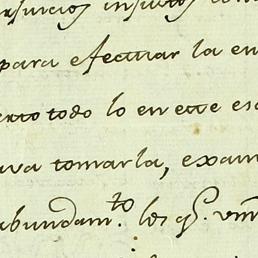 para efectuar la en
erto todo lo en este es
va tomarla, exam
abundam.to los qs. vm